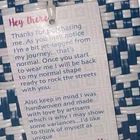 Hey there
Thanks for purchasing
me. As you may notice
I'm a bit jet-lagged from
my journey, that's
normal. Once you start
to wear me I will be back
to my normal shape
ready to rock the streets
with you.
Also keep in mind I was
handwoven and made
with love by artisans
which is why I may
to think of myself as
unique